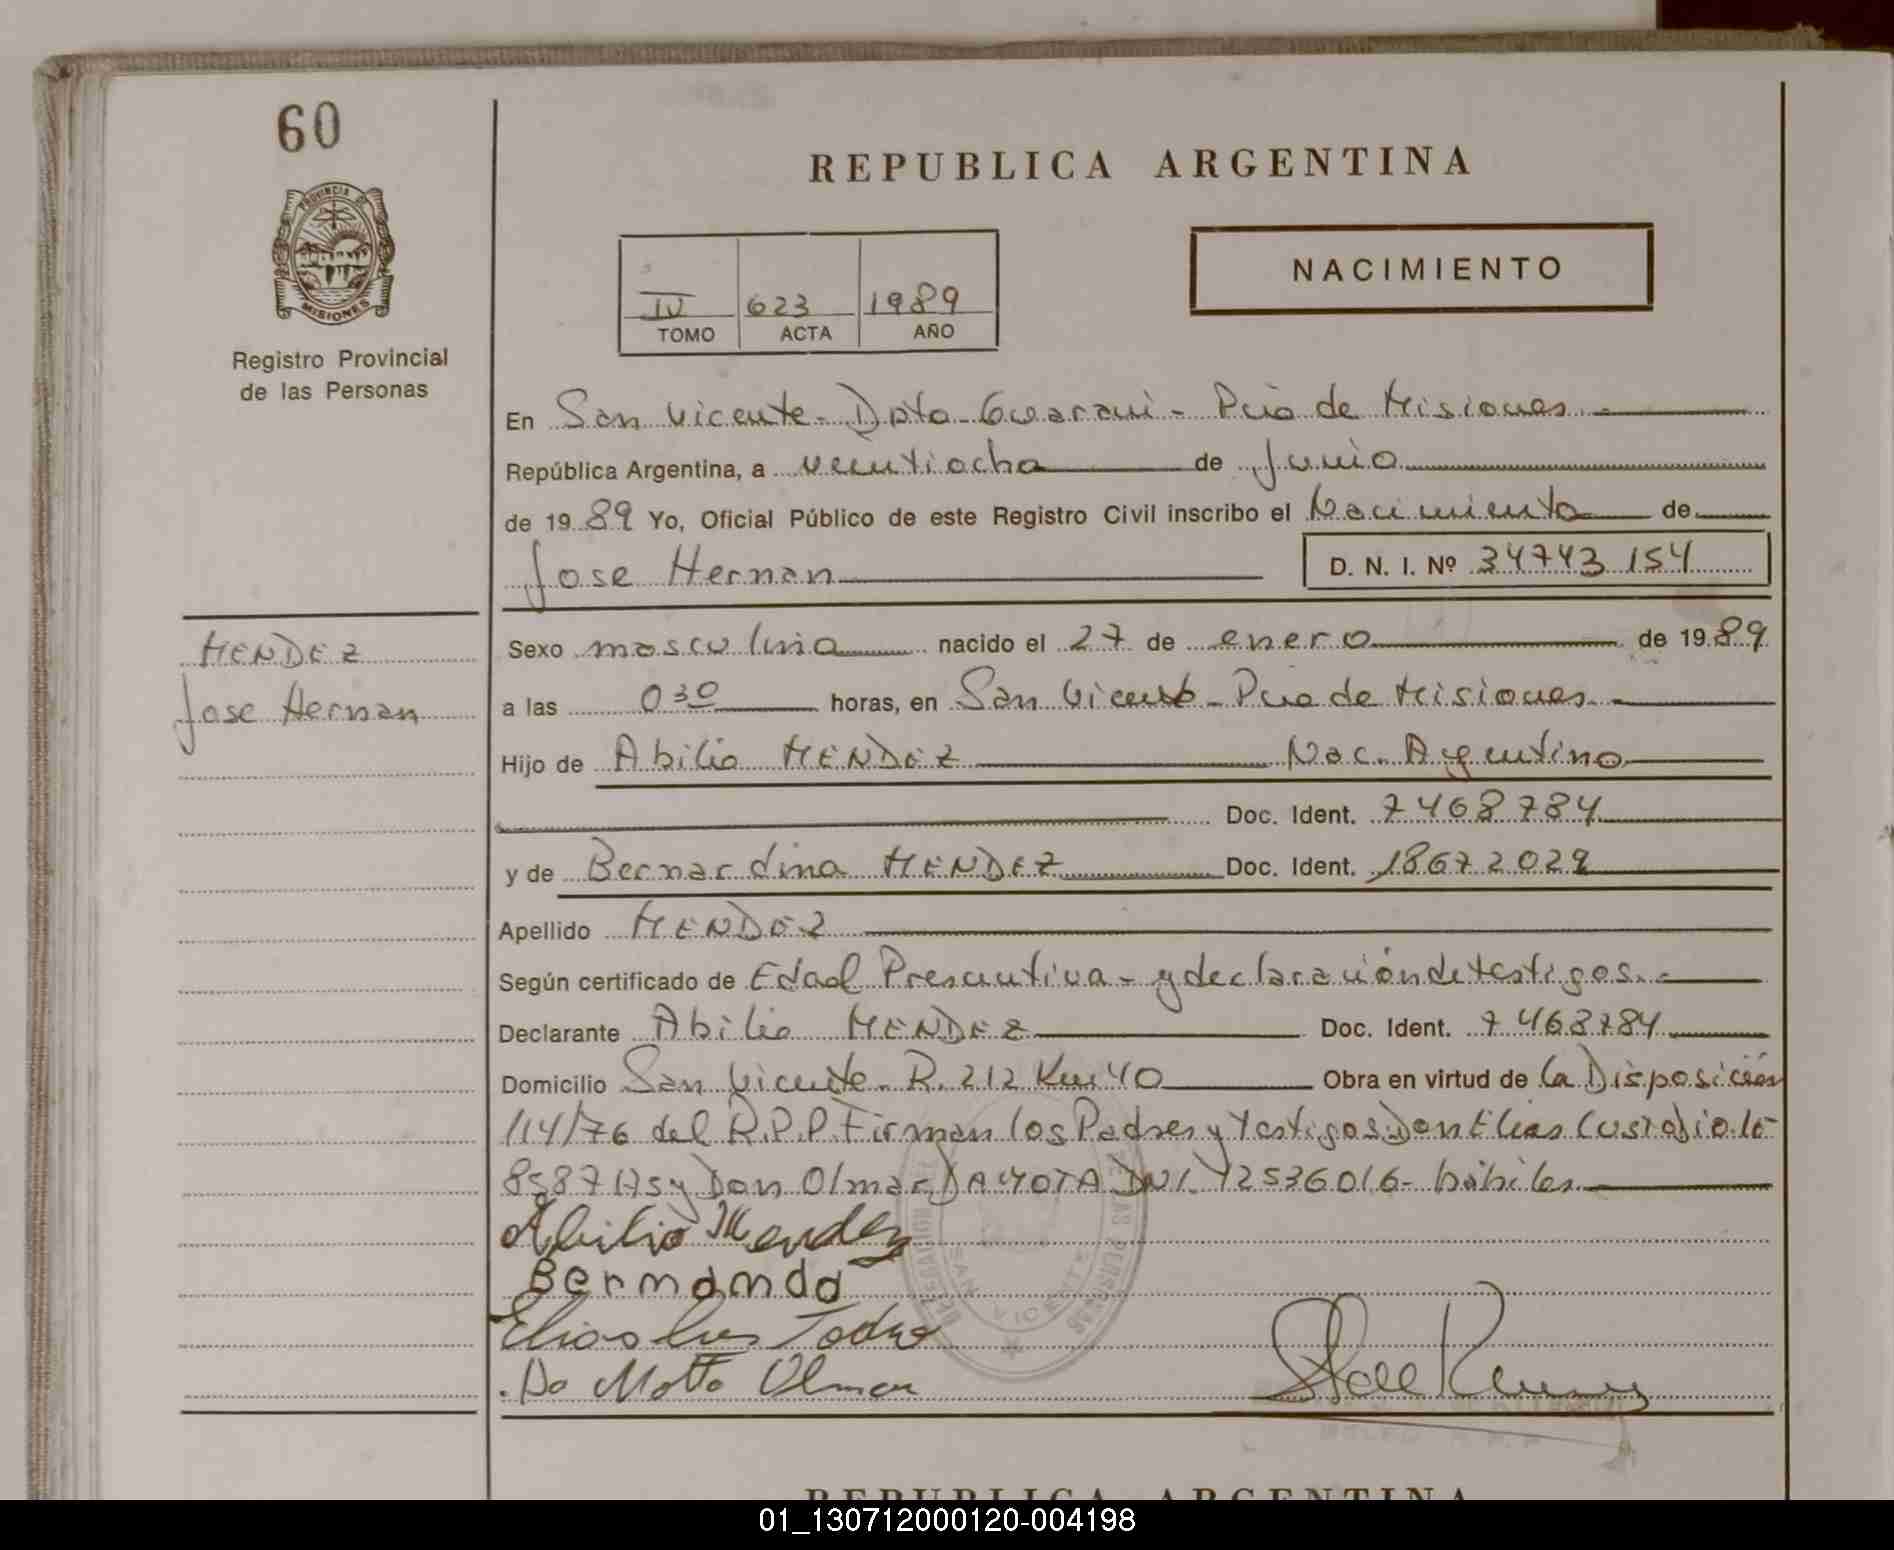 60
REPUBLICA ARGENTINA
PROVINCIA DE
MISIONES
Registro Provincial
de las Personas
IV 623 1989
TOMO ACTA AÑO
NACIMIENTO
En San Vicente - Dpto - Guarani - Pcia de Misiones
República Argentina, a veintiocho de Junio
de 1989 Yo, Oficial Público de este Registro Civil inscribo el Nacimiento de
Jose Hernan D. N. I. Nº 34743154
MENDEZ
Jose Hernan
Sexo masculino nacido el 27 de enero de 1989
a las 030 horas, en San Vicente - Pcia de Misiones
Hijo de Abilio MENDEZ Nac. Argentino
Doc. Ident. 7468784
y de Bernardina MENDEZ Doc. Ident. 18672029
Apellido MENDEZ
Según certificado de Edad Presuntiva - y declaración de testigos.
Declarante Abilio MENDEZ Doc. Ident. 7468784
Domicilio San Vicente - R. 212 Km 40 Obra en virtud de la Disposición
114/76 del R.P.P. Firman los Padres y Testigos Don Elias Custodio LE
8587145 y Don Olmar DA MOTA DNI. 12536016 - hábiles
Abilio Mendez
SAN VICENTE
Da Motta Olmar
REPUBLICA ARGENTINA
01_130712000120-004198